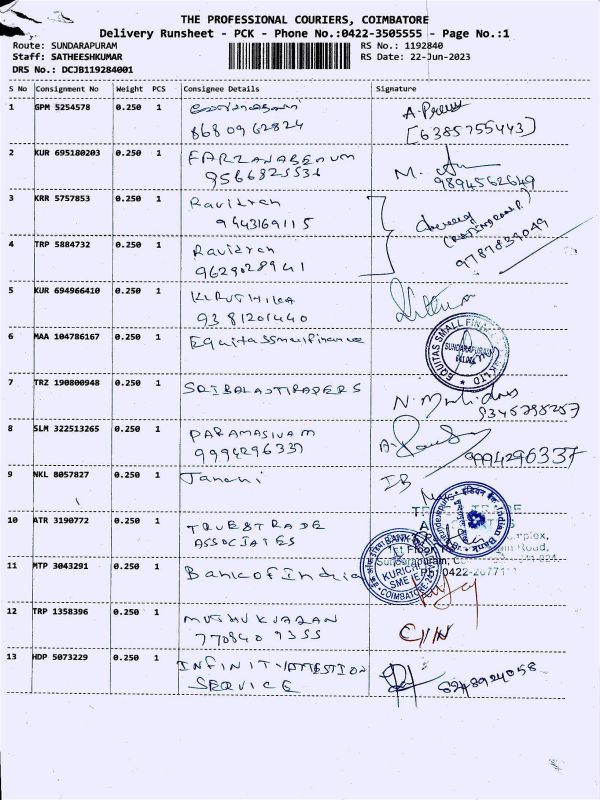 THE PROFESSIONAL COURIERS, COIMBATORE
Delivery Runsheet - PCK - Phone No.:0422-3505555 - Page No.:1
Route: SUNDARAPURAM
RS No.: 1192840
Staff: SATHEESHKUMAR
RS Date: 22-Jun-2023
DRS No.: DCJB119284001
S No Consignment No Weight PCS Consignee Details Signature
1 GPM 5254578 0.250 1
8680962824
[6385755443]
2 KUR 695180203 0.250 1 FARZANABEGUM
9566825536 9894562649
3 KRR 5757853 0.250 1 Ravidran
9443169115
9787839049
4 TRP 5884732 0.250 1 Ravidran
9629028941
5 KUR 694966410 0.250 1 KIRUTHIKA
9381201440
6 MAA 104786167 0.250 1 Equitassmallfinance
EQUITAS SMALL FINANCE BANK LTD
SUNDARAPURAM
7 TRZ 190800948 0.250 1 SRIBALAJIPAPERS
8 SLM 322513265 0.250 1 PARAMASIVAM
9994296337 9994296337
9 NKL 8057827 0.250 1 Janani IB
Indian Bank
10 ATR 3190772 0.250 1 TRUESTRADE
ASSOCIATES
11 MTP 3043291 0.250 1 BankofIndia
KURICHI
SME
COIMBATORE
12 TRP 1358396 0.250 1 MUTHUKUMARAN
7708409355
13 HDP 5073229 0.250 1 INFINITYATTESTION
SERVICE 6248924058